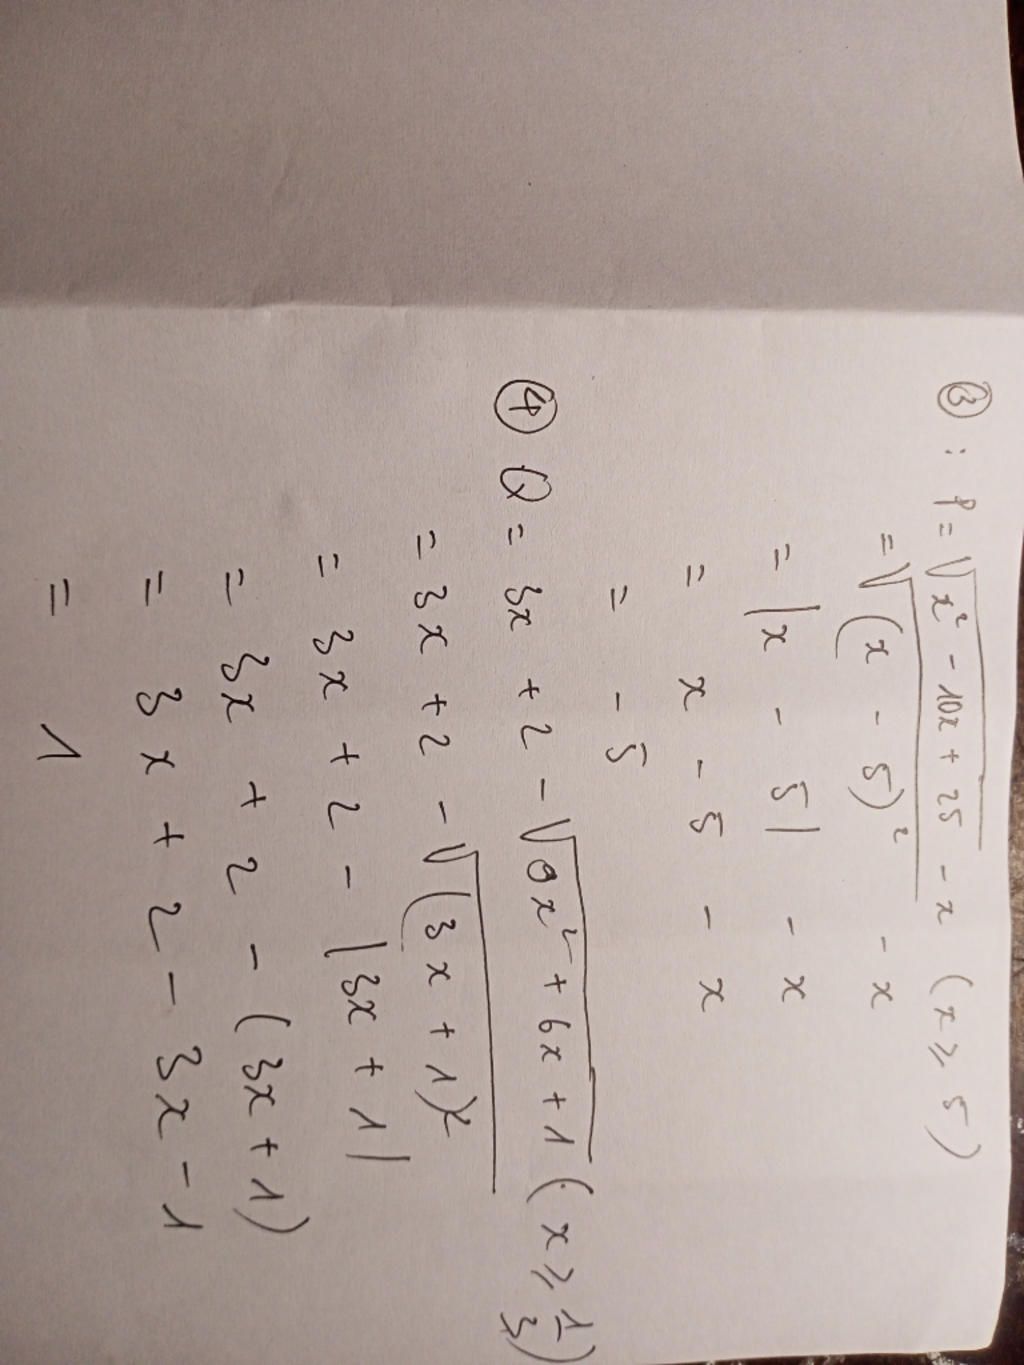 ③ : P = √(x² - 10x + 25) - x (x ≥ 5)
= √((x - 5)²) - x
= |x - 5| - x
= x - 5 - x
= - 5
④ Q = 3x + 2 - √(9x² + 6x + 1) (x ≥ 1/3)
= 3x + 2 - √((3x + 1)²)
= 3x + 2 - |3x + 1|
= 3x + 2 - (3x + 1)
= 3x + 2 - 3x - 1
= 1